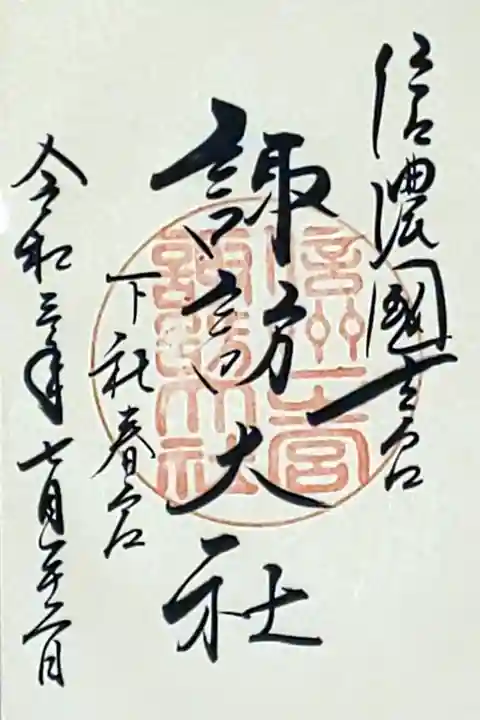 信濃國一之宮
諏訪大社
下社春宮
令和三年七月
信州一宮
諏訪大社